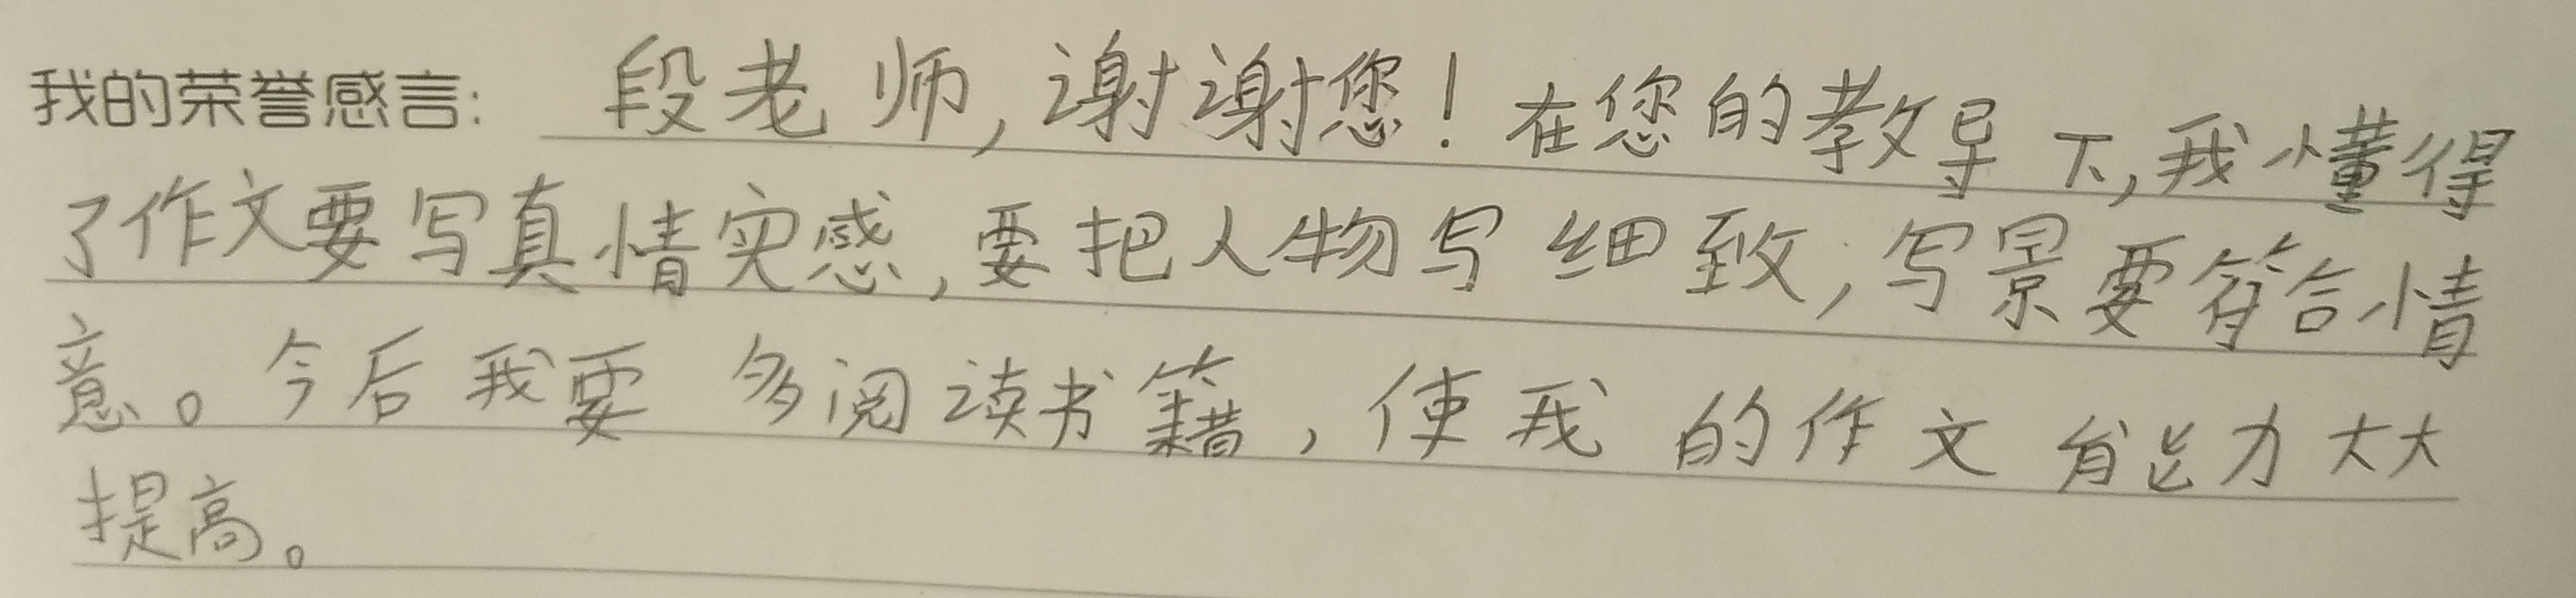 我的荣誉感言: 段老师,谢谢您!在您的教导下,我懂得
了作文要写真情实感,要把人物写细致,写景要符合情
意。今后我要多阅读书籍,使我的作文能力大大
提高。